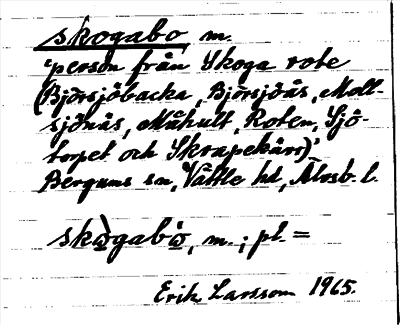 skogabo m.
'person från Skoga rote
(Björsjöbacka, Björsjöås, Moll-
sjönäs, Måhult, Roten, Sjö-
torpet och Skrapekärr)'
Bergums sn, Vättle hd, Älvsb. l.
skògabó, m.; pl. =
Erik Larsson 1965.